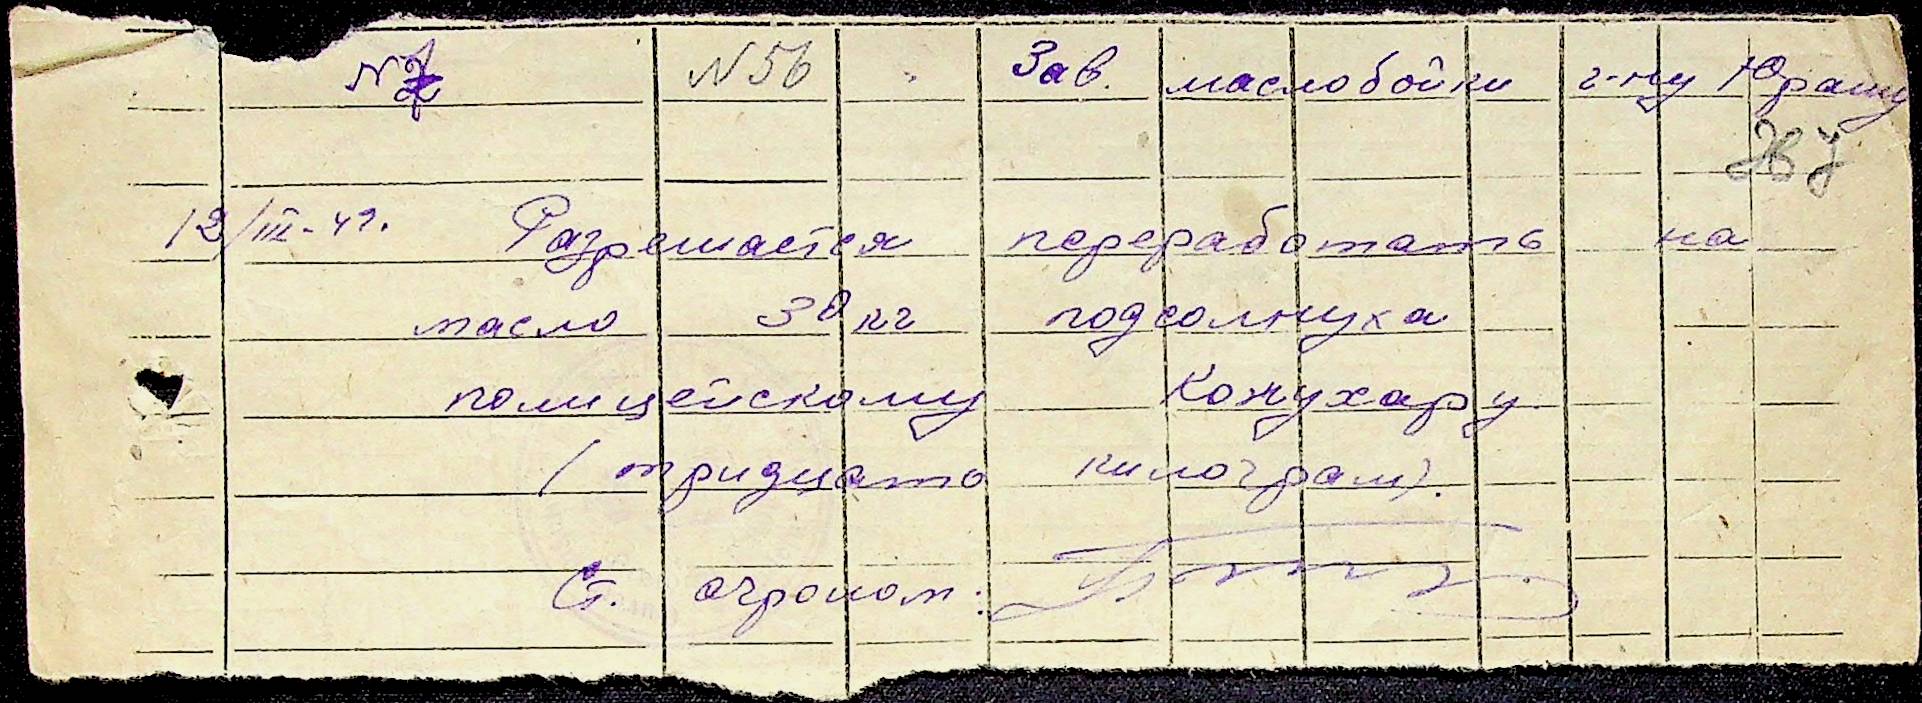 №2 №56 Зав. маслобойки г-ну Юрашу
12/III-42. Разрешается переработать на
масло 30 кг подсолнуха
полицейскому Кожухару
(тридцать килограм).
Ст. агроном: